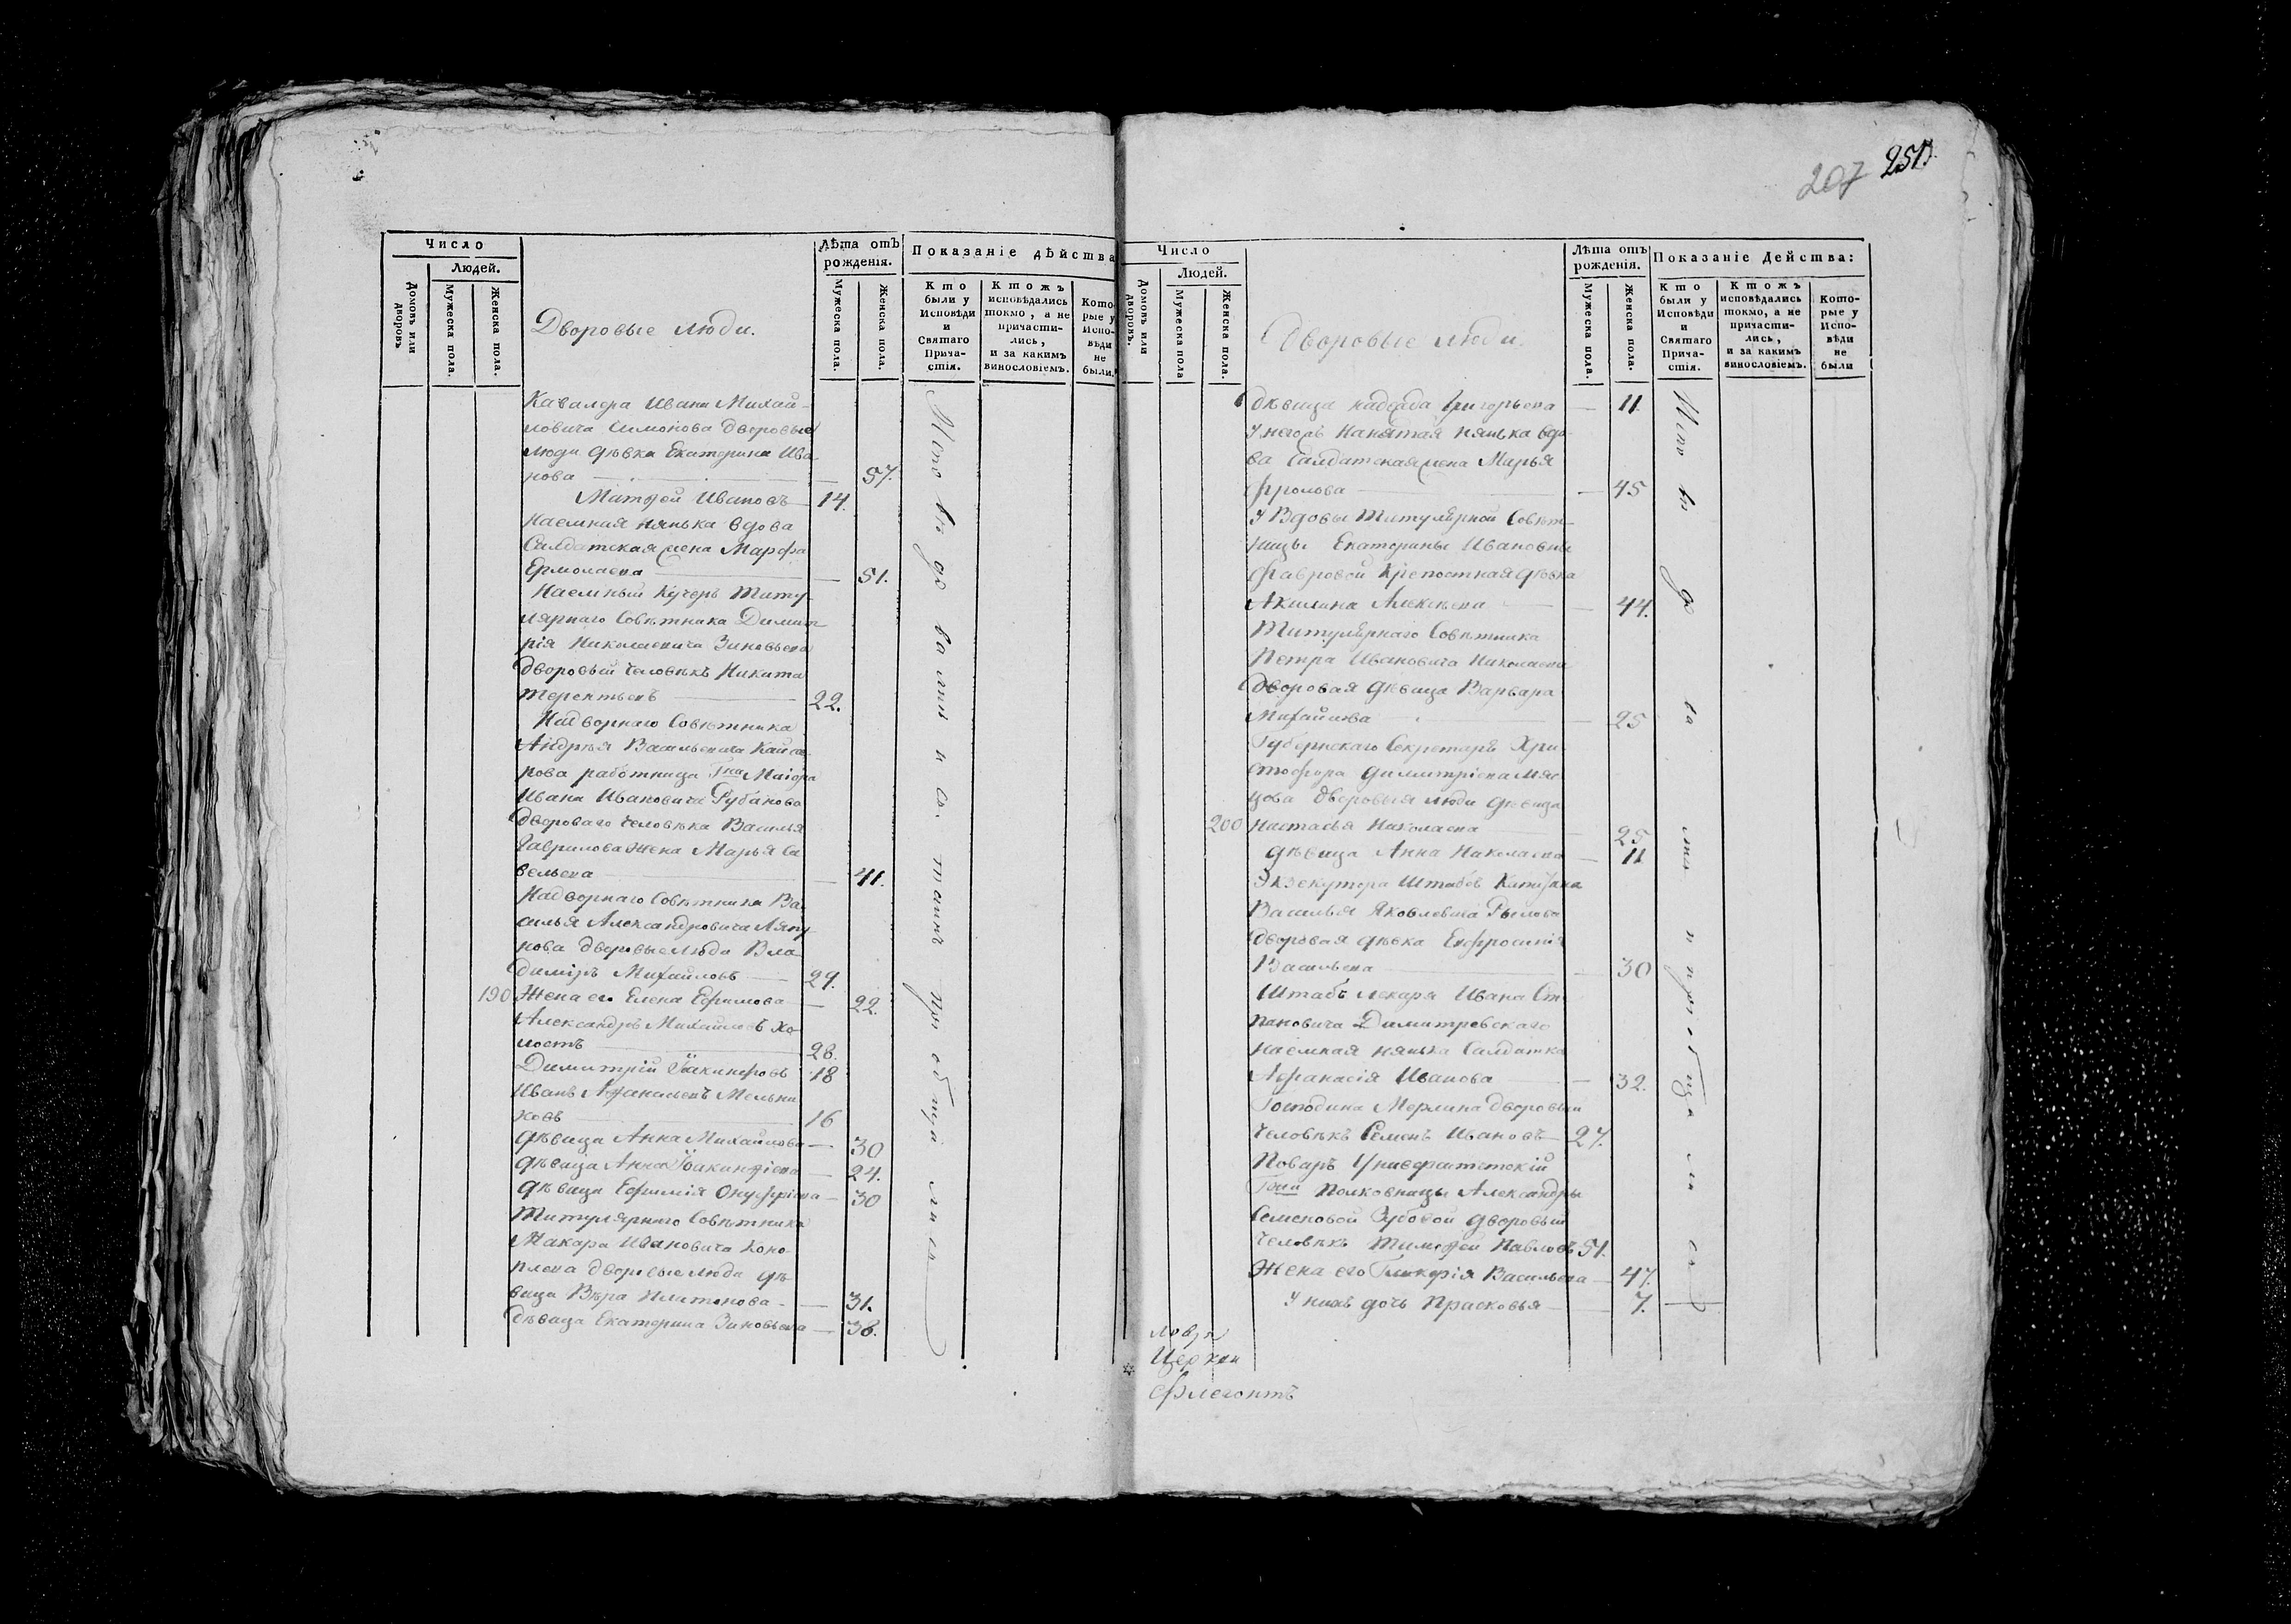 207 251
Число
Людей.
Домовъ или дворовъ
Мужеска пола.
Женска пола.
Дворовые люди.
Лѣта отъ рожденія.
Мужеска пола.
Женска пола.
Показаніе дѣйства
Кто были у Исповѣди и Святаго Прича-стія.
Ктожъ исповѣдались токмо, а не причасти-лись, и за какимъ винословіемъ.
Кото-рые у Испо-вѣди не были.
Кавалера Ивана Михай-
ловича Симонова дворовые
люди дѣвка Екатерина Ива-
нова 57.
Матѳей Ивановъ 14.
Наемная нянька вдова
Салдатская жена Марфа
Ермолаева 51.
Наемный Кучеръ Титу-
лярнаго Совѣтника Димит
рія Николаевича Зиновьева
дворовый человѣкъ Никита
Терентьевъ 22.
Надворнаго Совѣтника
Андрея Васильевича Кайса-
рова работница Гна Маіора
Ивана Ивановича Рубанова
двороваго человѣка Василья
Гаврилова жена Марья Са
вельева 41.
Надворнаго Совѣтника Ва
силья Александровича Ляпу
нова дворовые люди Вла
димiръ Михайловъ 29.
190 Жена его Елена Ефимова 22.
Александръ Михайловъ хо-
лостъ 28.
Димитрій Іоакинфовъ 18
Иванъ Аѳанасьевъ Мельни
ковъ 16
дѣвица Анна Михайлова 30
дѣвица Анна Іоакинѳіева 24.
дѣвица Ефимія Онуфріева 30
Титулярнаго Совѣтника
Макара Ивановича Коно-
плева дворовые люди дѣ-
вица Вѣра Платонова 31.
дѣвица Екатерина Зиновьева 38.
Исповѣдвались и св. таинъ пріобщались
Число
Людей.
Домовъ или дворовъ.
Мужеска пола
Женска пола.
Дворовые люди.
Лѣта отъ рожденія.
Мужеска пола.
Женска пола.
Показаніе Действа:
Кто были у Исповѣди и Святаго Прича-стія.
Ктожъ исповѣдались токмо, а не причасти-лись, и за какимъ винословіемъ.
Кото-рые у Испо-вѣди не были
дѣвица Надежда Григорьева 11.
У негожъ нанятая нянька вдо
ва Салдатская жена Марья
Фролова 45
У Вдовы Титулярной Совѣт-
ницы Екатерины Ивановны
Фавровой крепостная дѣвка
Акилина Алексѣева 44.
Титулярнаго Совѣтника
Петра Ивановича Николаева
дворовая дѣвица Варвара
Михайлова 25
Губернскаго Секретаря Хри-
стофора Димитріева Мяс
цова дворовыя люди дѣвица
200 Настасья Николаева 25
дѣвица Анна Николаева 11
Экзекутора Штабсъ Капитана
Василья Яковлевича Рылова
дворовая дѣвка Евфросинія
Васильева 30
Штабъ лекаря Ивана Сте
пановича Димитревскаго
наемная нянька Салдатка
Афанасія Иванова 32.
Господина Мерлина дворовый
человѣкъ Семенъ Ивановъ 27.
Поваръ Университетскій
Гжи Полковницы Александры
Семеновой Зубовой дворовый
человѣкъ Тимоѳей Павловъ 51.
Жена его Гликерія Васильева 47.
У нихъ дочь Прасковья 7.
Исповѣдвались и пріобщались
Церкви
Флегонтъ